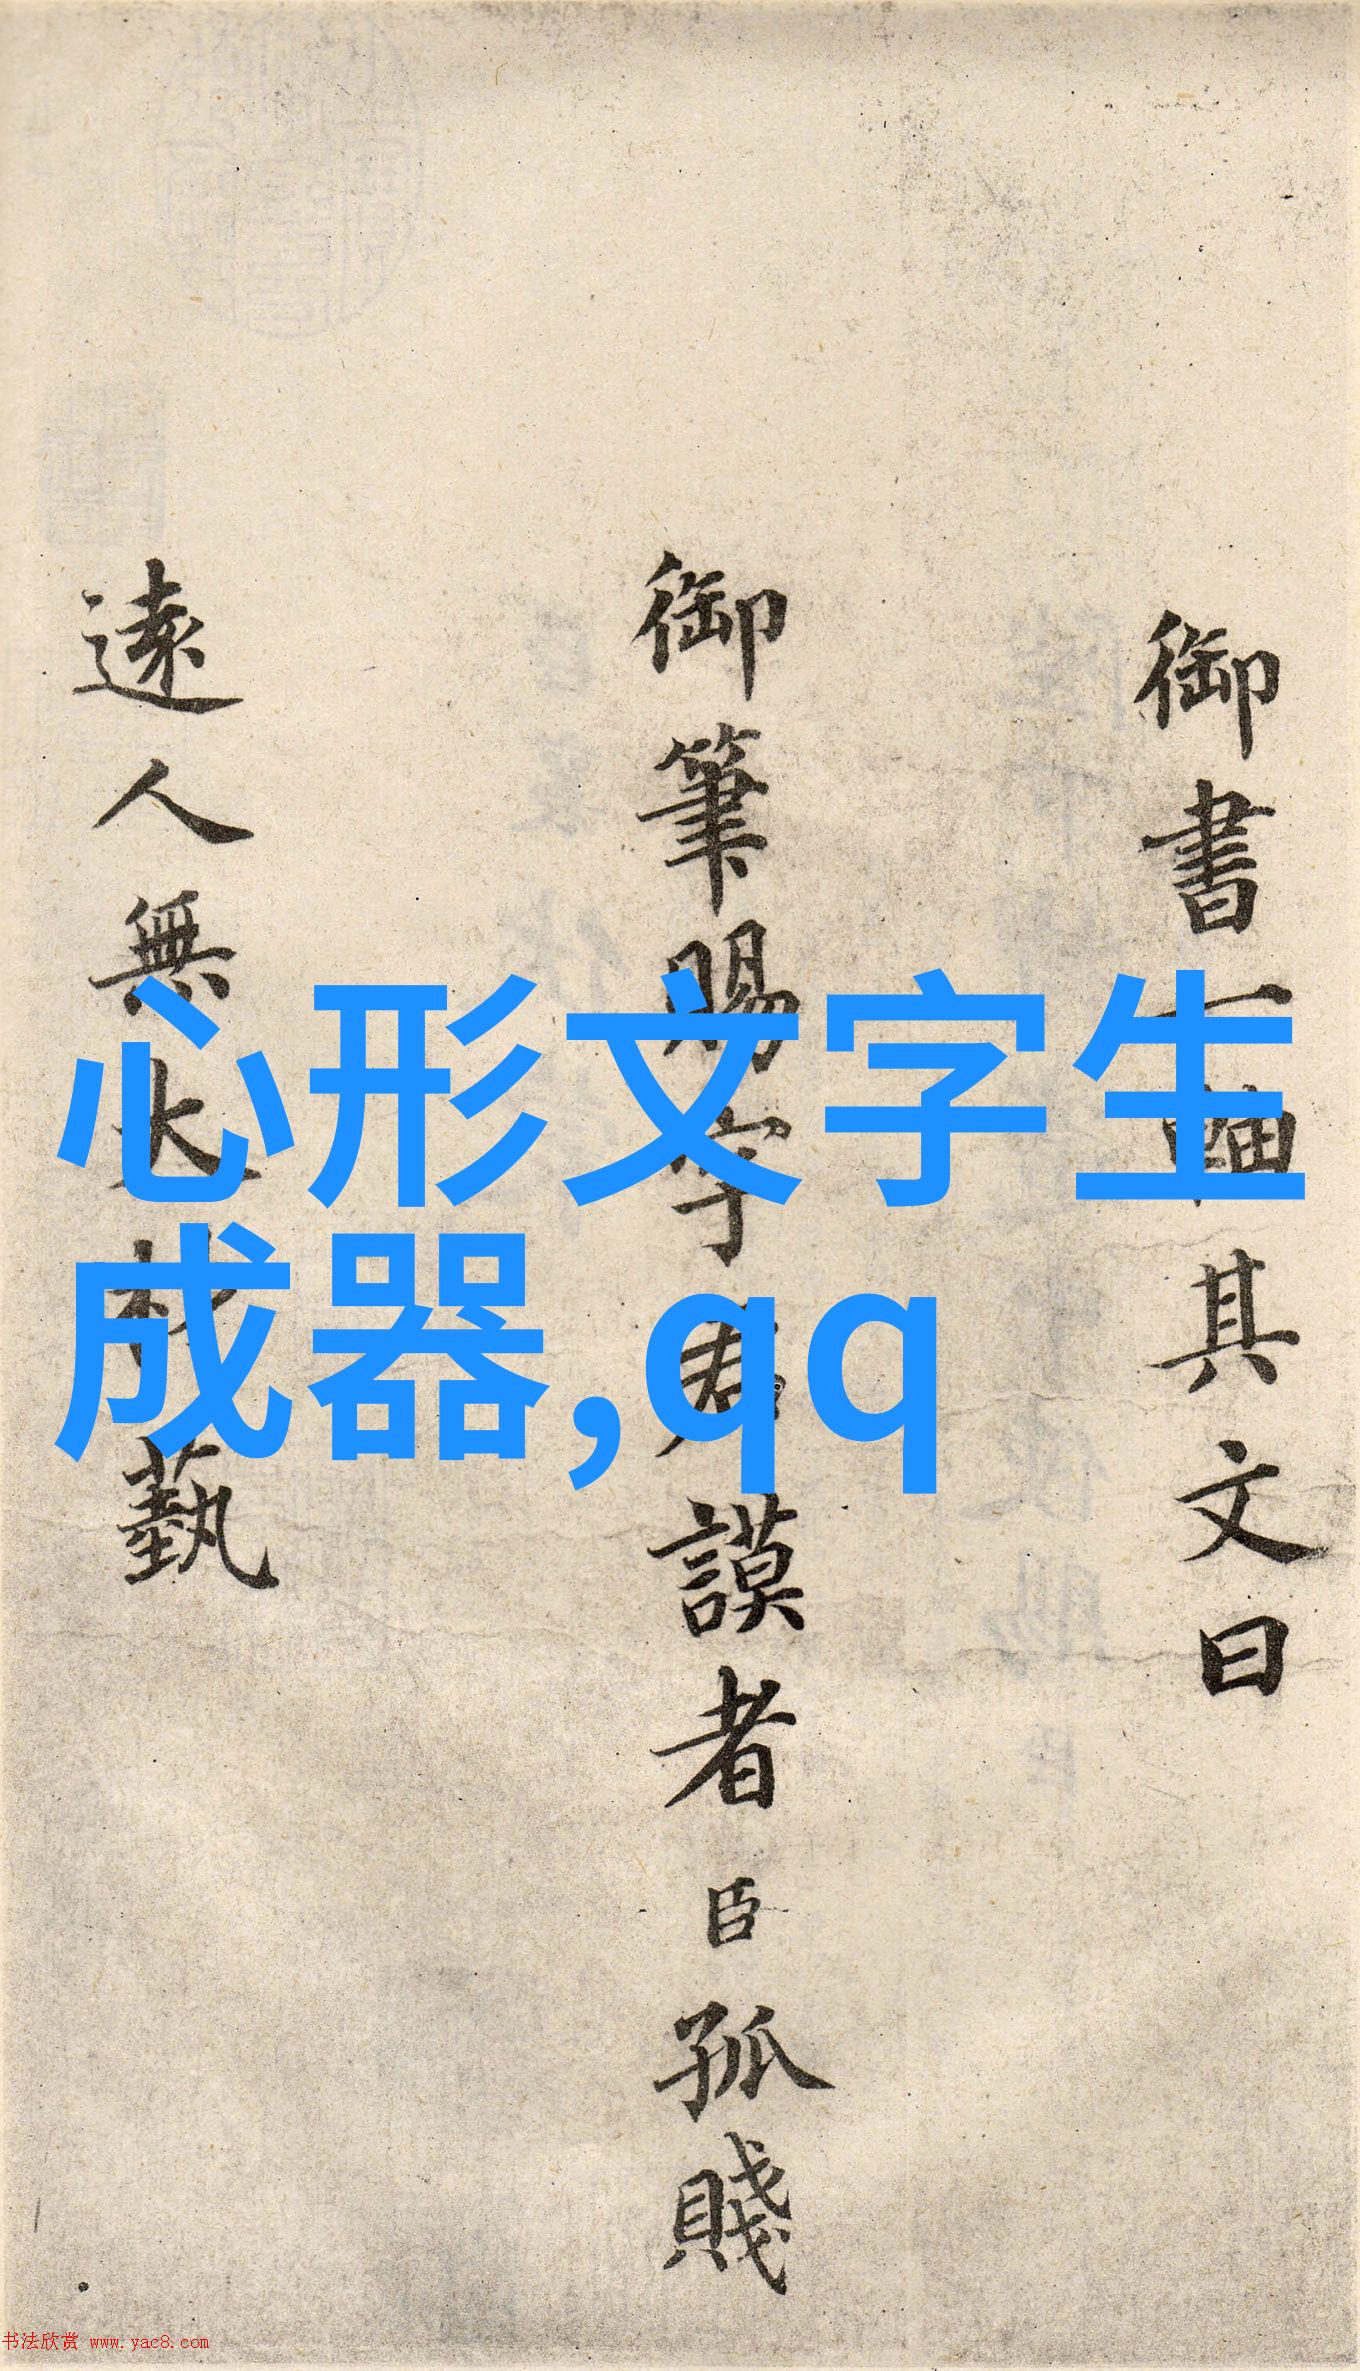 御書一軸其文曰
御筆賜字君謨者臣孤賤
遠人無大材藝
心形文字生
成器,qq
书法欣赏 www.yac8.com